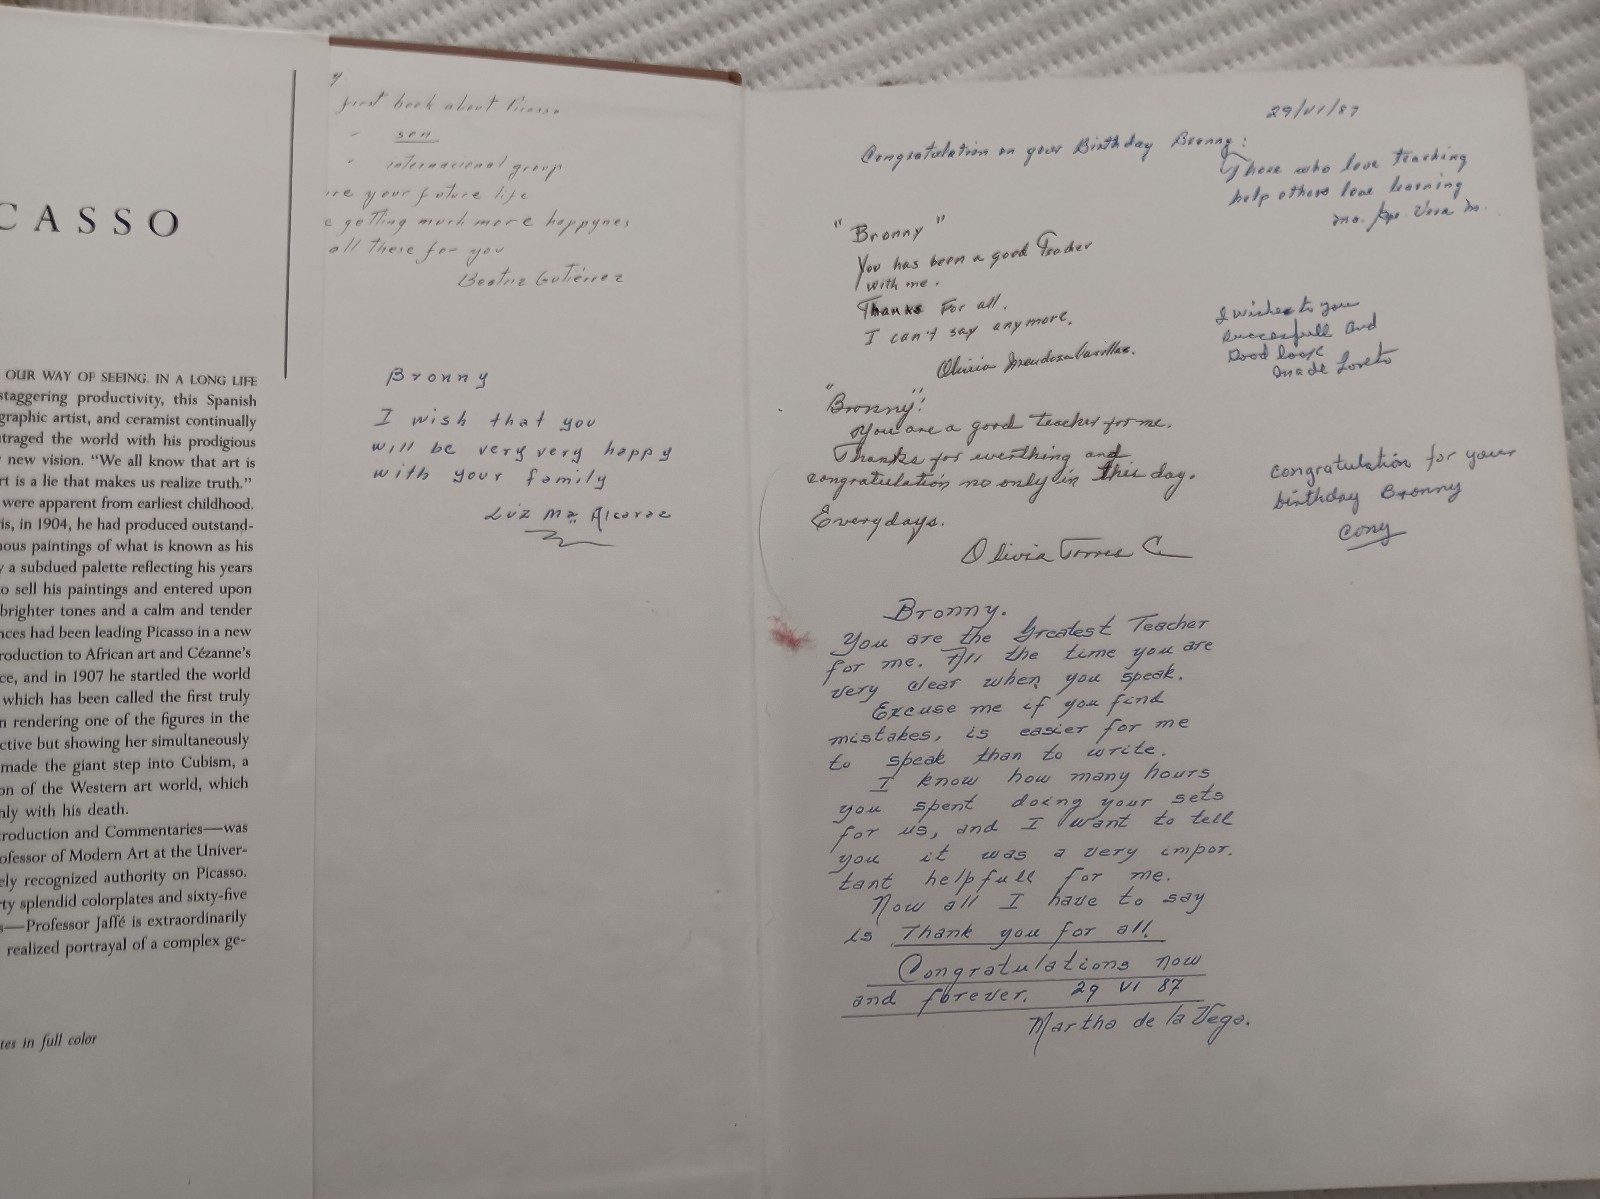 CASSO
OUR WAY OF SEEING. IN A LONG LIFE
staggering productivity, this Spanish
graphic artist, and ceramist continually
traged the world with his prodigious
new vision. “We all know that art is
rt is a lie that makes us realize truth.”
were apparent from earliest childhood.
is, in 1904, he had produced outstand-
nous paintings of what is known as his
y a subdued palette reflecting his years
o sell his paintings and entered upon
brighter tones and a calm and tender
nces had been leading Picasso in a new
roduction to African art and Cézanne’s
ce, and in 1907 he startled the world
which has been called the first truly
n rendering one of the figures in the
ctive but showing her simultaneously
made the giant step into Cubism, a
on of the Western art world, which
nly with his death.
troduction and Commentaries—was
ofessor of Modern Art at the Univer-
ely recognized authority on Picasso.
ty splendid colorplates and sixty-five
s—Professor Jaffé is extraordinarily
realized portrayal of a complex ge-
tes in full color
y
first book about Picasso
" sen
" internacional group
re your future life
e getting much more happynes
all these for you
Beatriz Gutiérrez
Bronny
I wish that you
will be very very happy
with your family
Luz Ma Alcaraz
29/VI/87
Congratulation on your Birthday Bronny:
Those who love teaching
help others love learning
Ma. Vera M.
"Bronny"
You has been a good Teacher
with me.
Thanks For all.
I can't say anymore.
Olivia Mendoza
I wishes to you
succesfull and
Good look
Ma de Loreto
"Bronny"!
You are a good teacher for me.
Thanks for everthing and
congratulation no only in this day.
Everydays.
Olivia Torres C
congratulation for your
birthday Bronny
Cony
Bronny.
You are the Greatest Teacher
for me. All the time you are
very clear when you speak.
Excuse me if you find
mistakes, is easier for me
to speak than to write.
I know how many hours
you spent doing your sets
for us, and I want to tell
you it was a very impor.
tant helpfull for me.
Now all I have to say
is Thank you for all.
Congratulations now
and forever. 29 VI 87
Martha de la Vega.